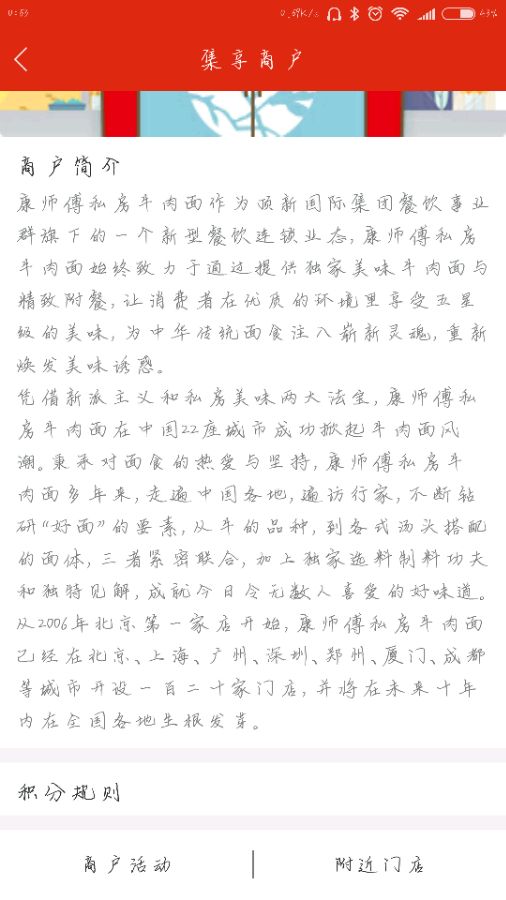 0:53
0.59K/s
43%
集享商户
商户简介
康师傅私房牛肉面作为顶新国际集团餐饮事业
群旗下的一个新型餐饮连锁业态,康师傅私房
牛肉面始终致力于通过提供独家美味牛肉面与
精致附餐,让消费者在优质的环境里享受五星
级的美味,为中华传统面食注入崭新灵魂,重新
焕发美味诱惑。
凭借新派主义和私房美味两大法宝,康师傅私
房牛肉面在中国22座城市成功掀起牛肉面风
潮。秉承对面食的热爱与坚持,康师傅私房牛
肉面多年来,走遍中国各地,遍访行家,不断钻
研“好面”的要素,从牛的品种,到各式汤头搭配
的面体,三者紧密联合,加上独家选料制料功夫
和独特见解,成就今日令无数人喜爱的好味道。
从2006年北京第一家店开始,康师傅私房牛肉面
己经在北京、上海、广州、深圳、郑州、厦门、成都
等城市开设一百二十家门店,并将在未来十年
内在全国各地生根发芽。
积分规则
商户活动
附近门店